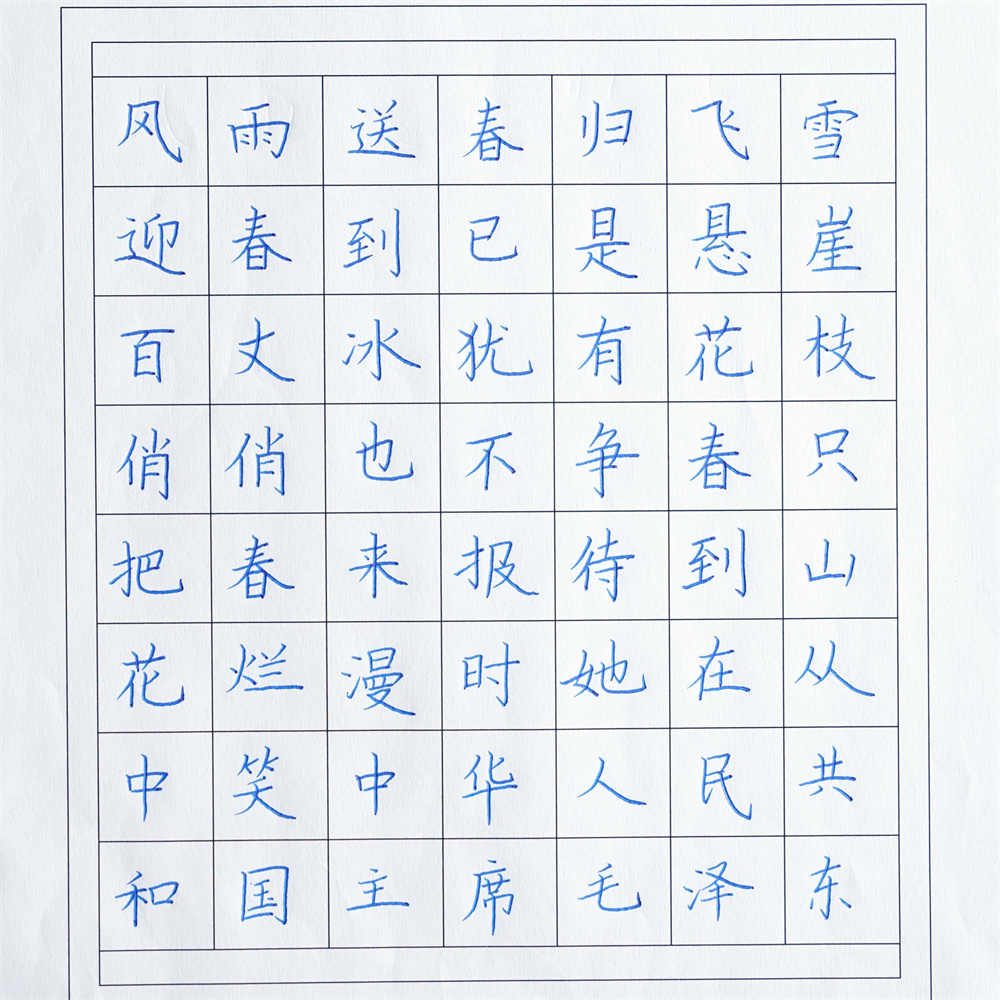 风雨送春归飞雪
迎春到已是悬崖
百丈冰犹有花枝
俏俏也不争春只
把春来报待到山
花烂漫时她在从
中笑中华人民共
和国主席毛泽东